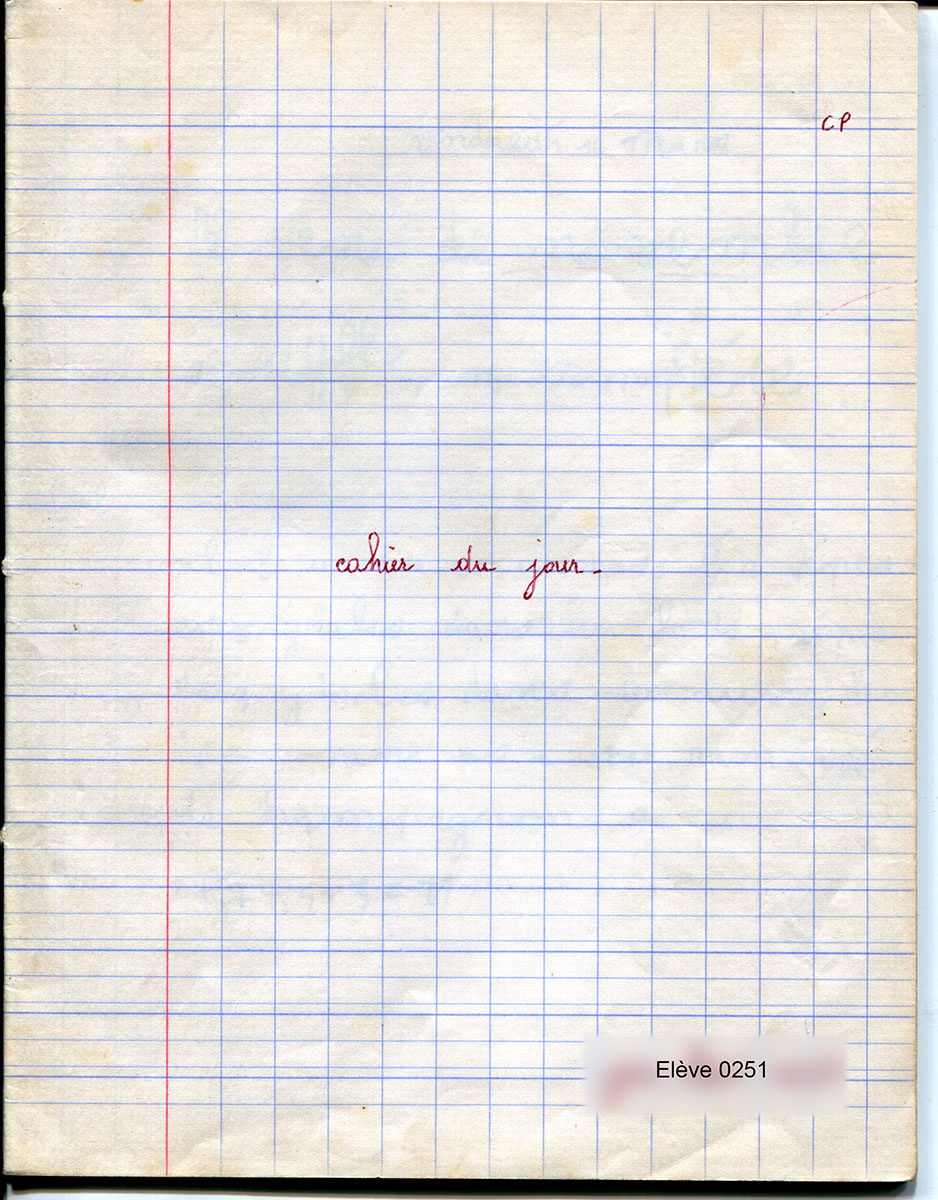 CP
cahier du jour.
Elève 0251